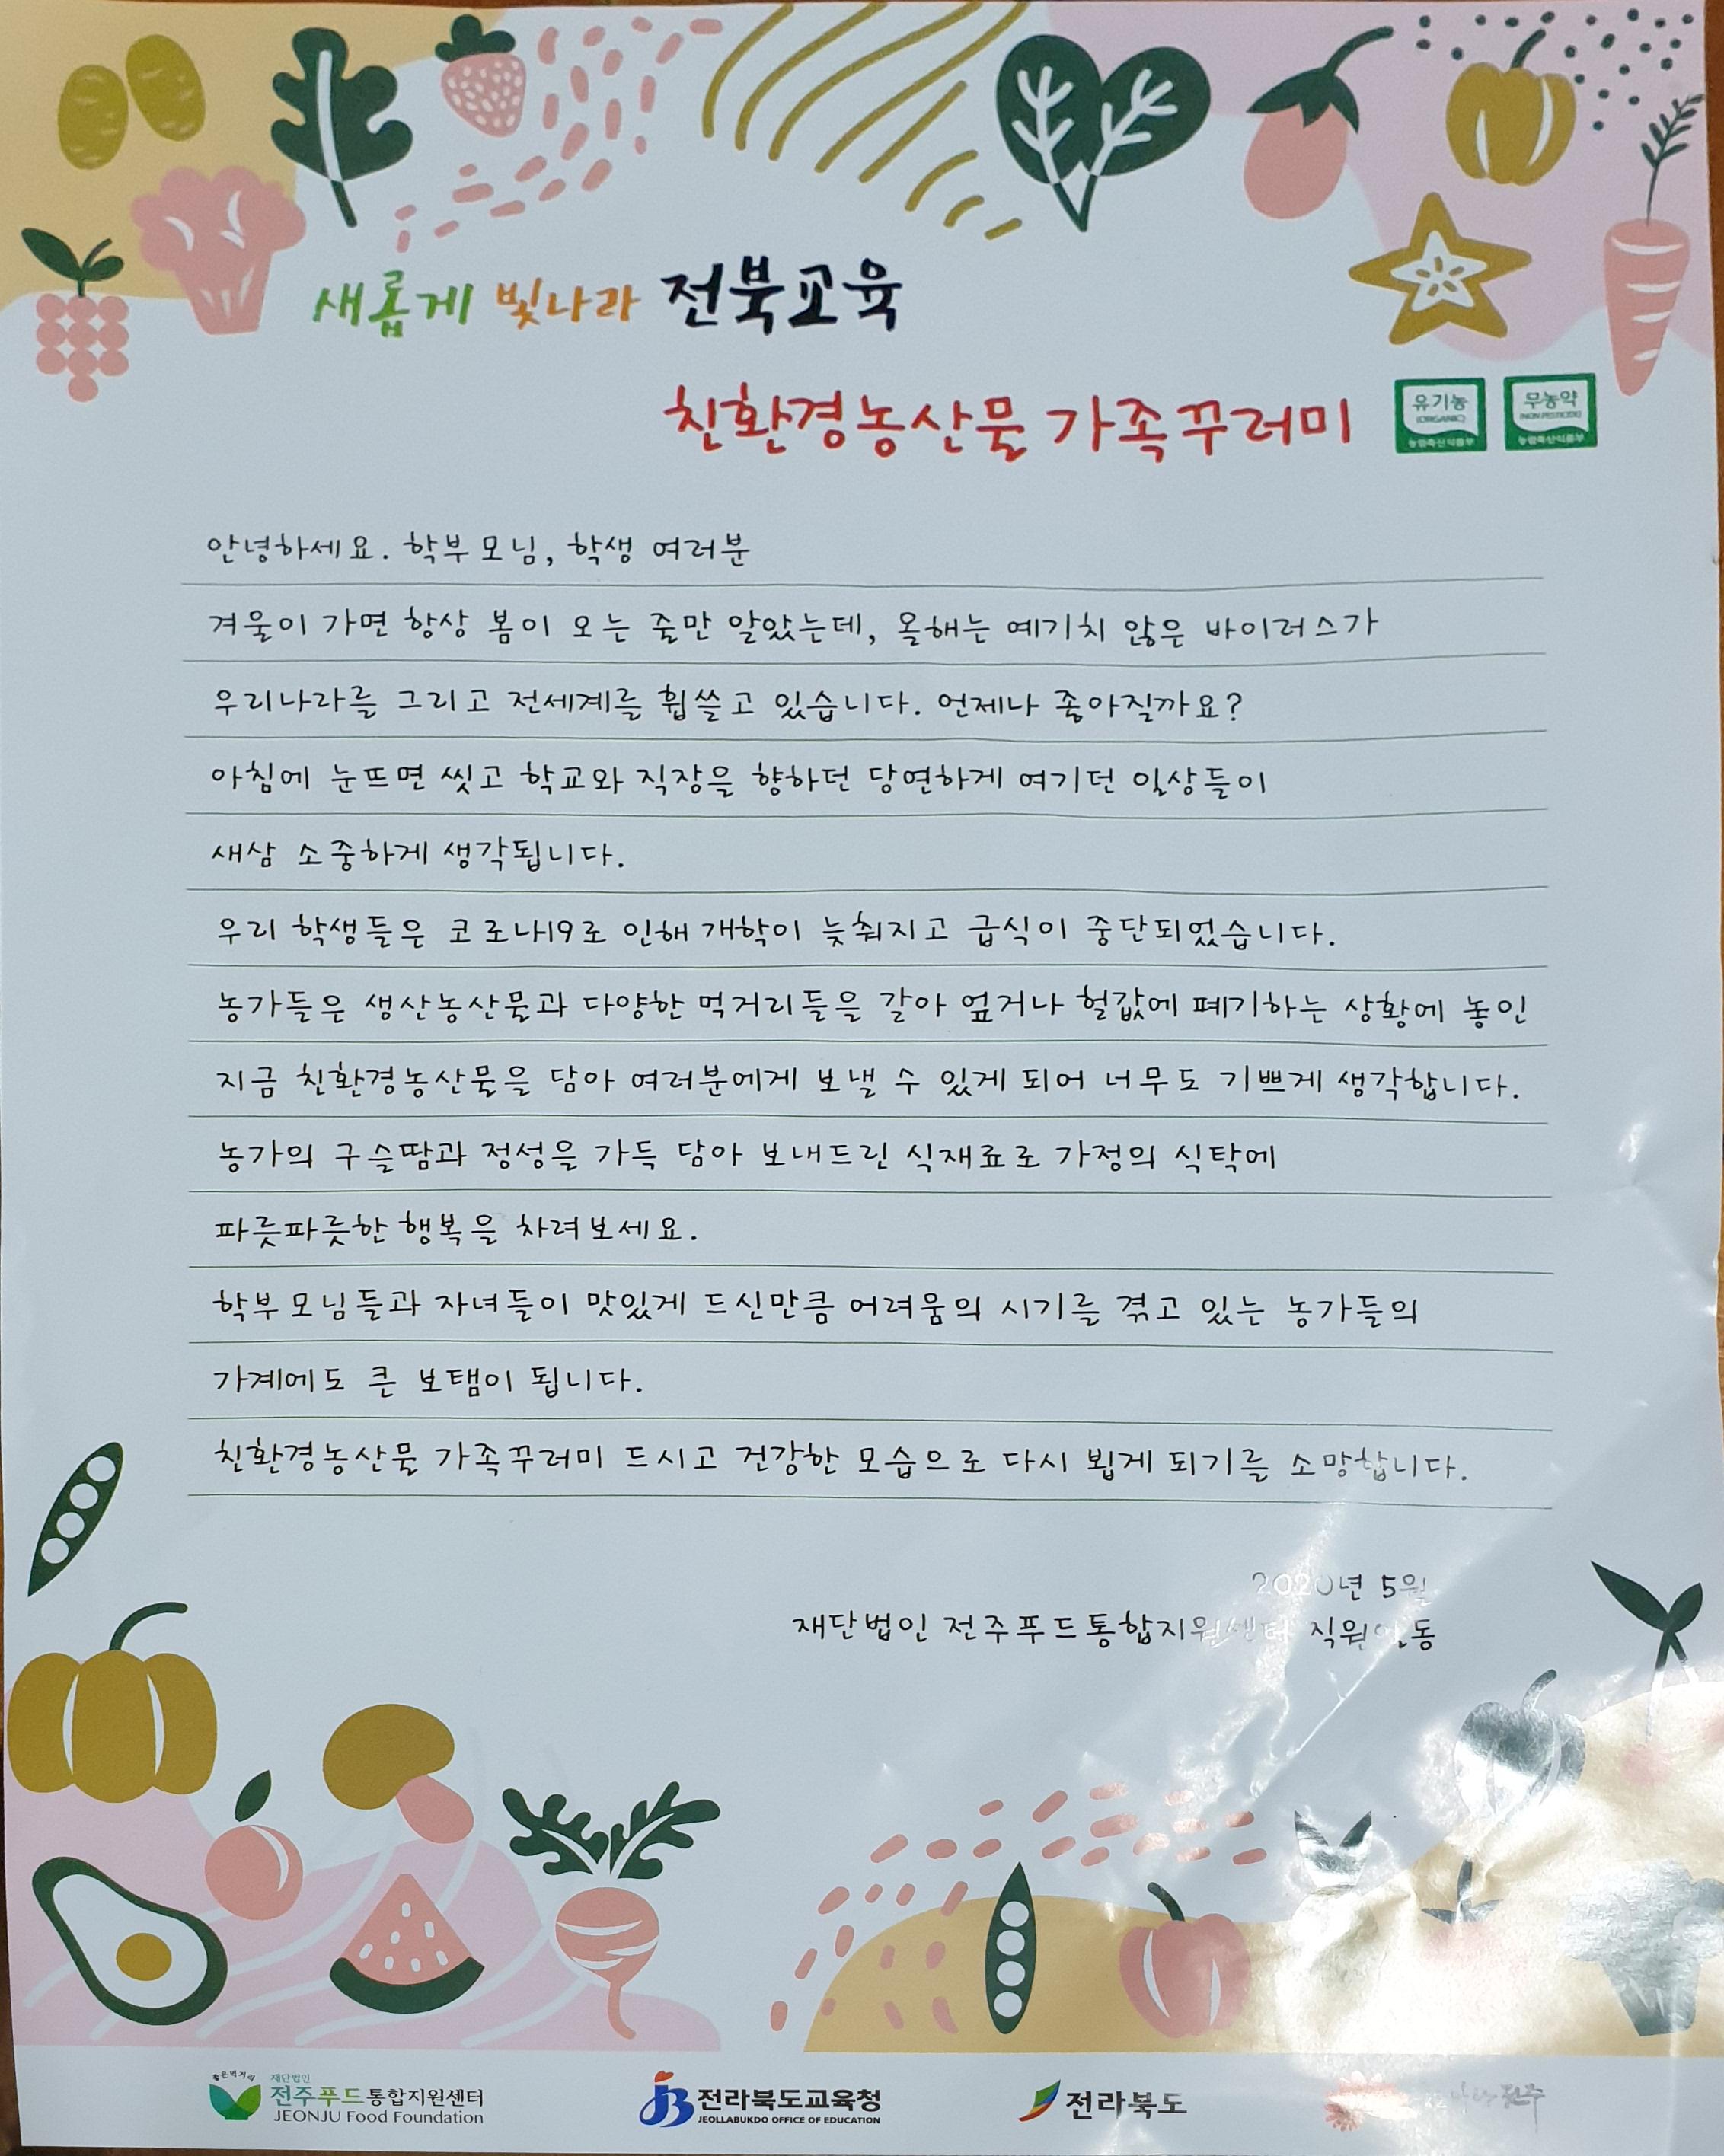 새롭게 빛나라 전북교육
친환경농산물 가족꾸러미
유기농
(ORGANIC)
농림축산식품부
무농약
(NON PESTICIDE)
농림축산식품부
안녕하세요. 학부모님, 학생 여러분
겨울이 가면 항상 봄이 오는 줄만 알았는데, 올해는 예기치 않은 바이러스가
우리나라를 그리고 전세계를 휩쓸고 있습니다. 언제나 좋아질까요?
아침에 눈뜨면 씻고 학교와 직장을 향하던 당연하게 여기던 일상들이
새삼 소중하게 생각됩니다.
우리 학생들은 코로나19로 인해 개학이 늦춰지고 급식이 중단되었습니다.
농가들은 생산농산물과 다양한 먹거리들을 갈아 엎거나 헐값에 폐기하는 상황에 놓인
지금 친환경농산물을 담아 여러분에게 보낼 수 있게 되어 너무도 기쁘게 생각합니다.
농가의 구슬땀과 정성을 가득 담아 보내드린 식재료로 가정의 식탁에
파릇파릇한 행복을 차려보세요.
학부모님들과 자녀들이 맛있게 드신만큼 어려움의 시기를 겪고 있는 농가들의
가계에도 큰 보탬이 됩니다.
친환경농산물 가족꾸러미 드시고 건강한 모습으로 다시 뵙게 되기를 소망합니다.
2020년 5월
재단법인 전주푸드통합지원센터 직원일동
좋은먹거리
재단법인
전주푸드통합지원센터
JEONJU Food Foundation
전라북도교육청
JEOLLABUKDO OFFICE OF EDUCATION
전라북도